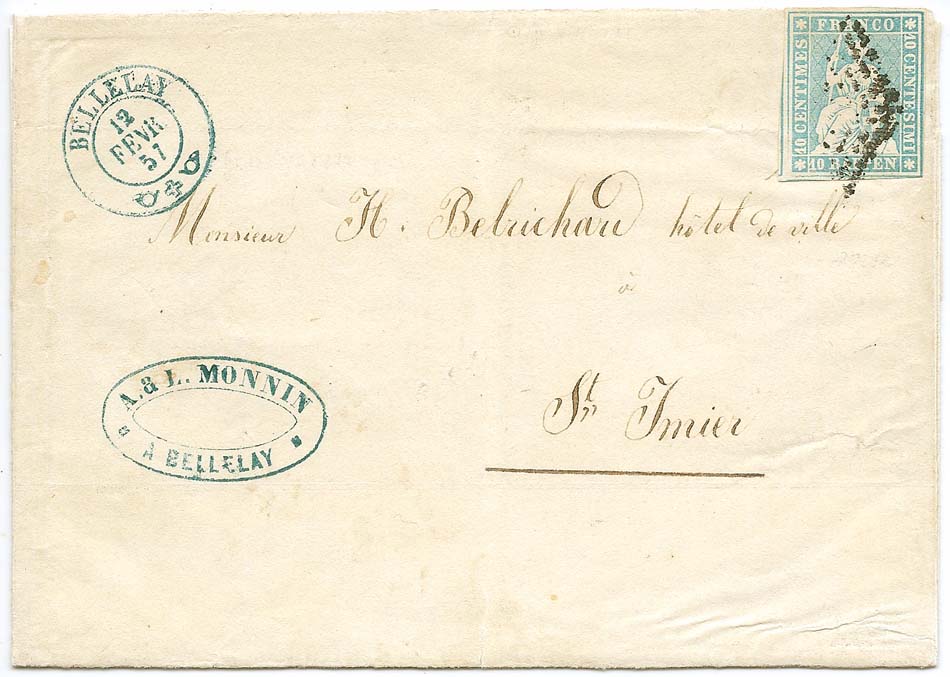 FRANCO
10 CENTIMES
10 CENTESIMI
10 RAPPEN
BELLELAY
12
FEVR
57
Monsieur H. Belrichard hôtel de ville
à
St Imier
A. & L. MONNIN
À BELLELAY